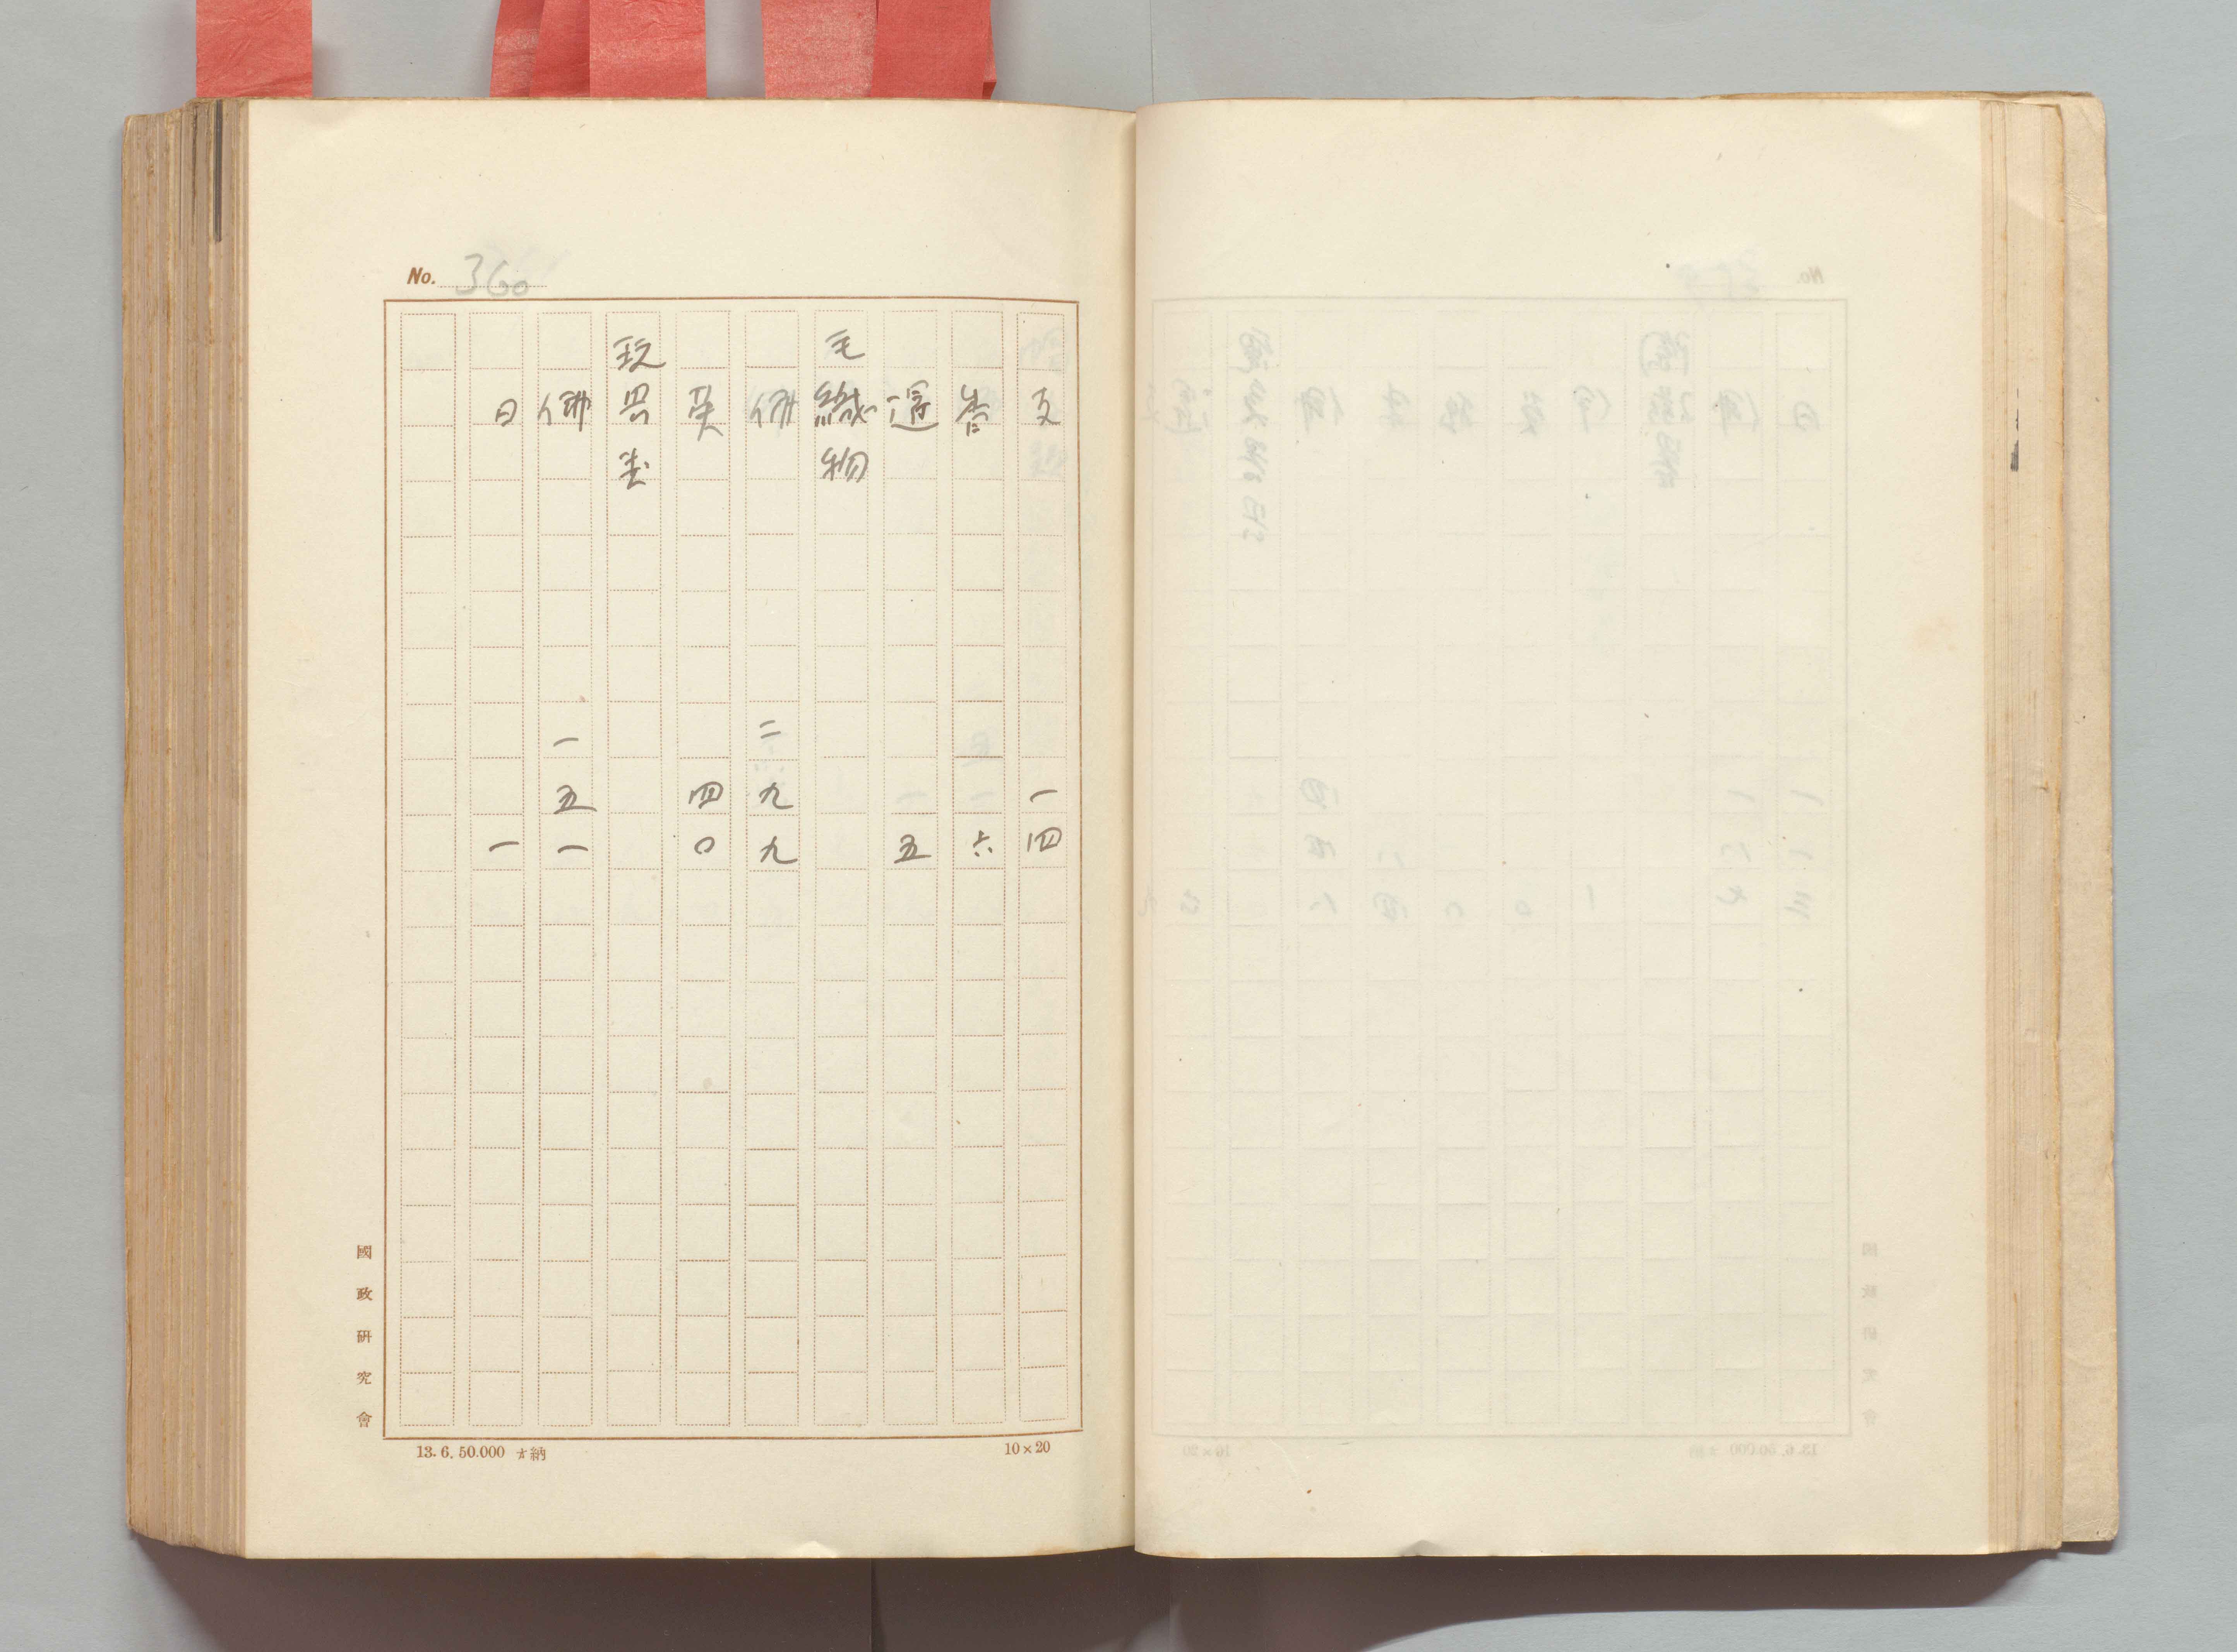 No. 360
支　一四
香　六
暹　五
毛織物
佛　二九九
英　四〇
玩具類
佛　一五一
日　一
國政研究會
13.6.50.000 納
10×20